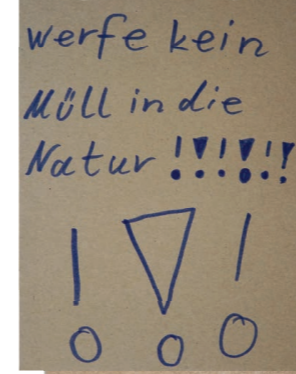 werfe kein
Müll in die
Natur !!!!!!
! ! !